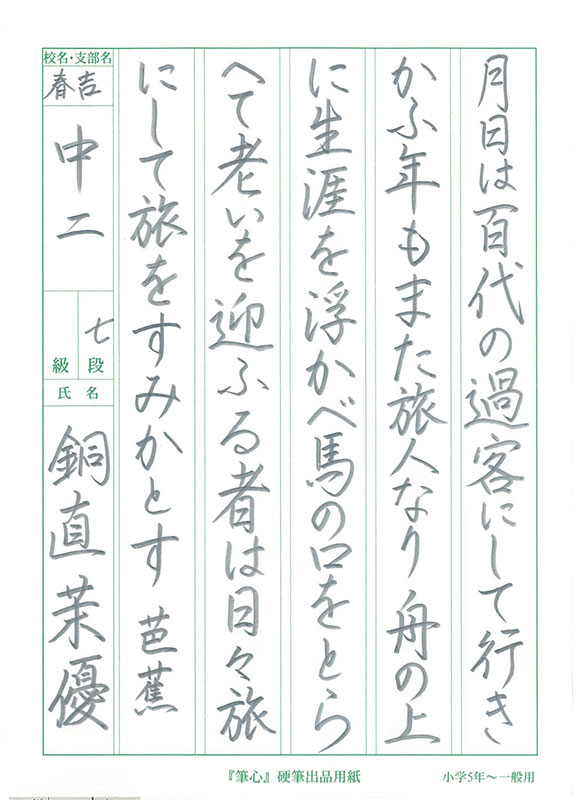 月日は百代の過客にして行き
かふ年もまた旅人なり舟の上
に生涯を浮かべ馬の口をとら
へて老いを迎ふる者は日々旅
にして旅をすみかとす 芭蕉
校名・支部名
春吉
中二
七段
級
氏名
銅直茉優
『筆心』硬筆出品用紙
小学5年〜一般用